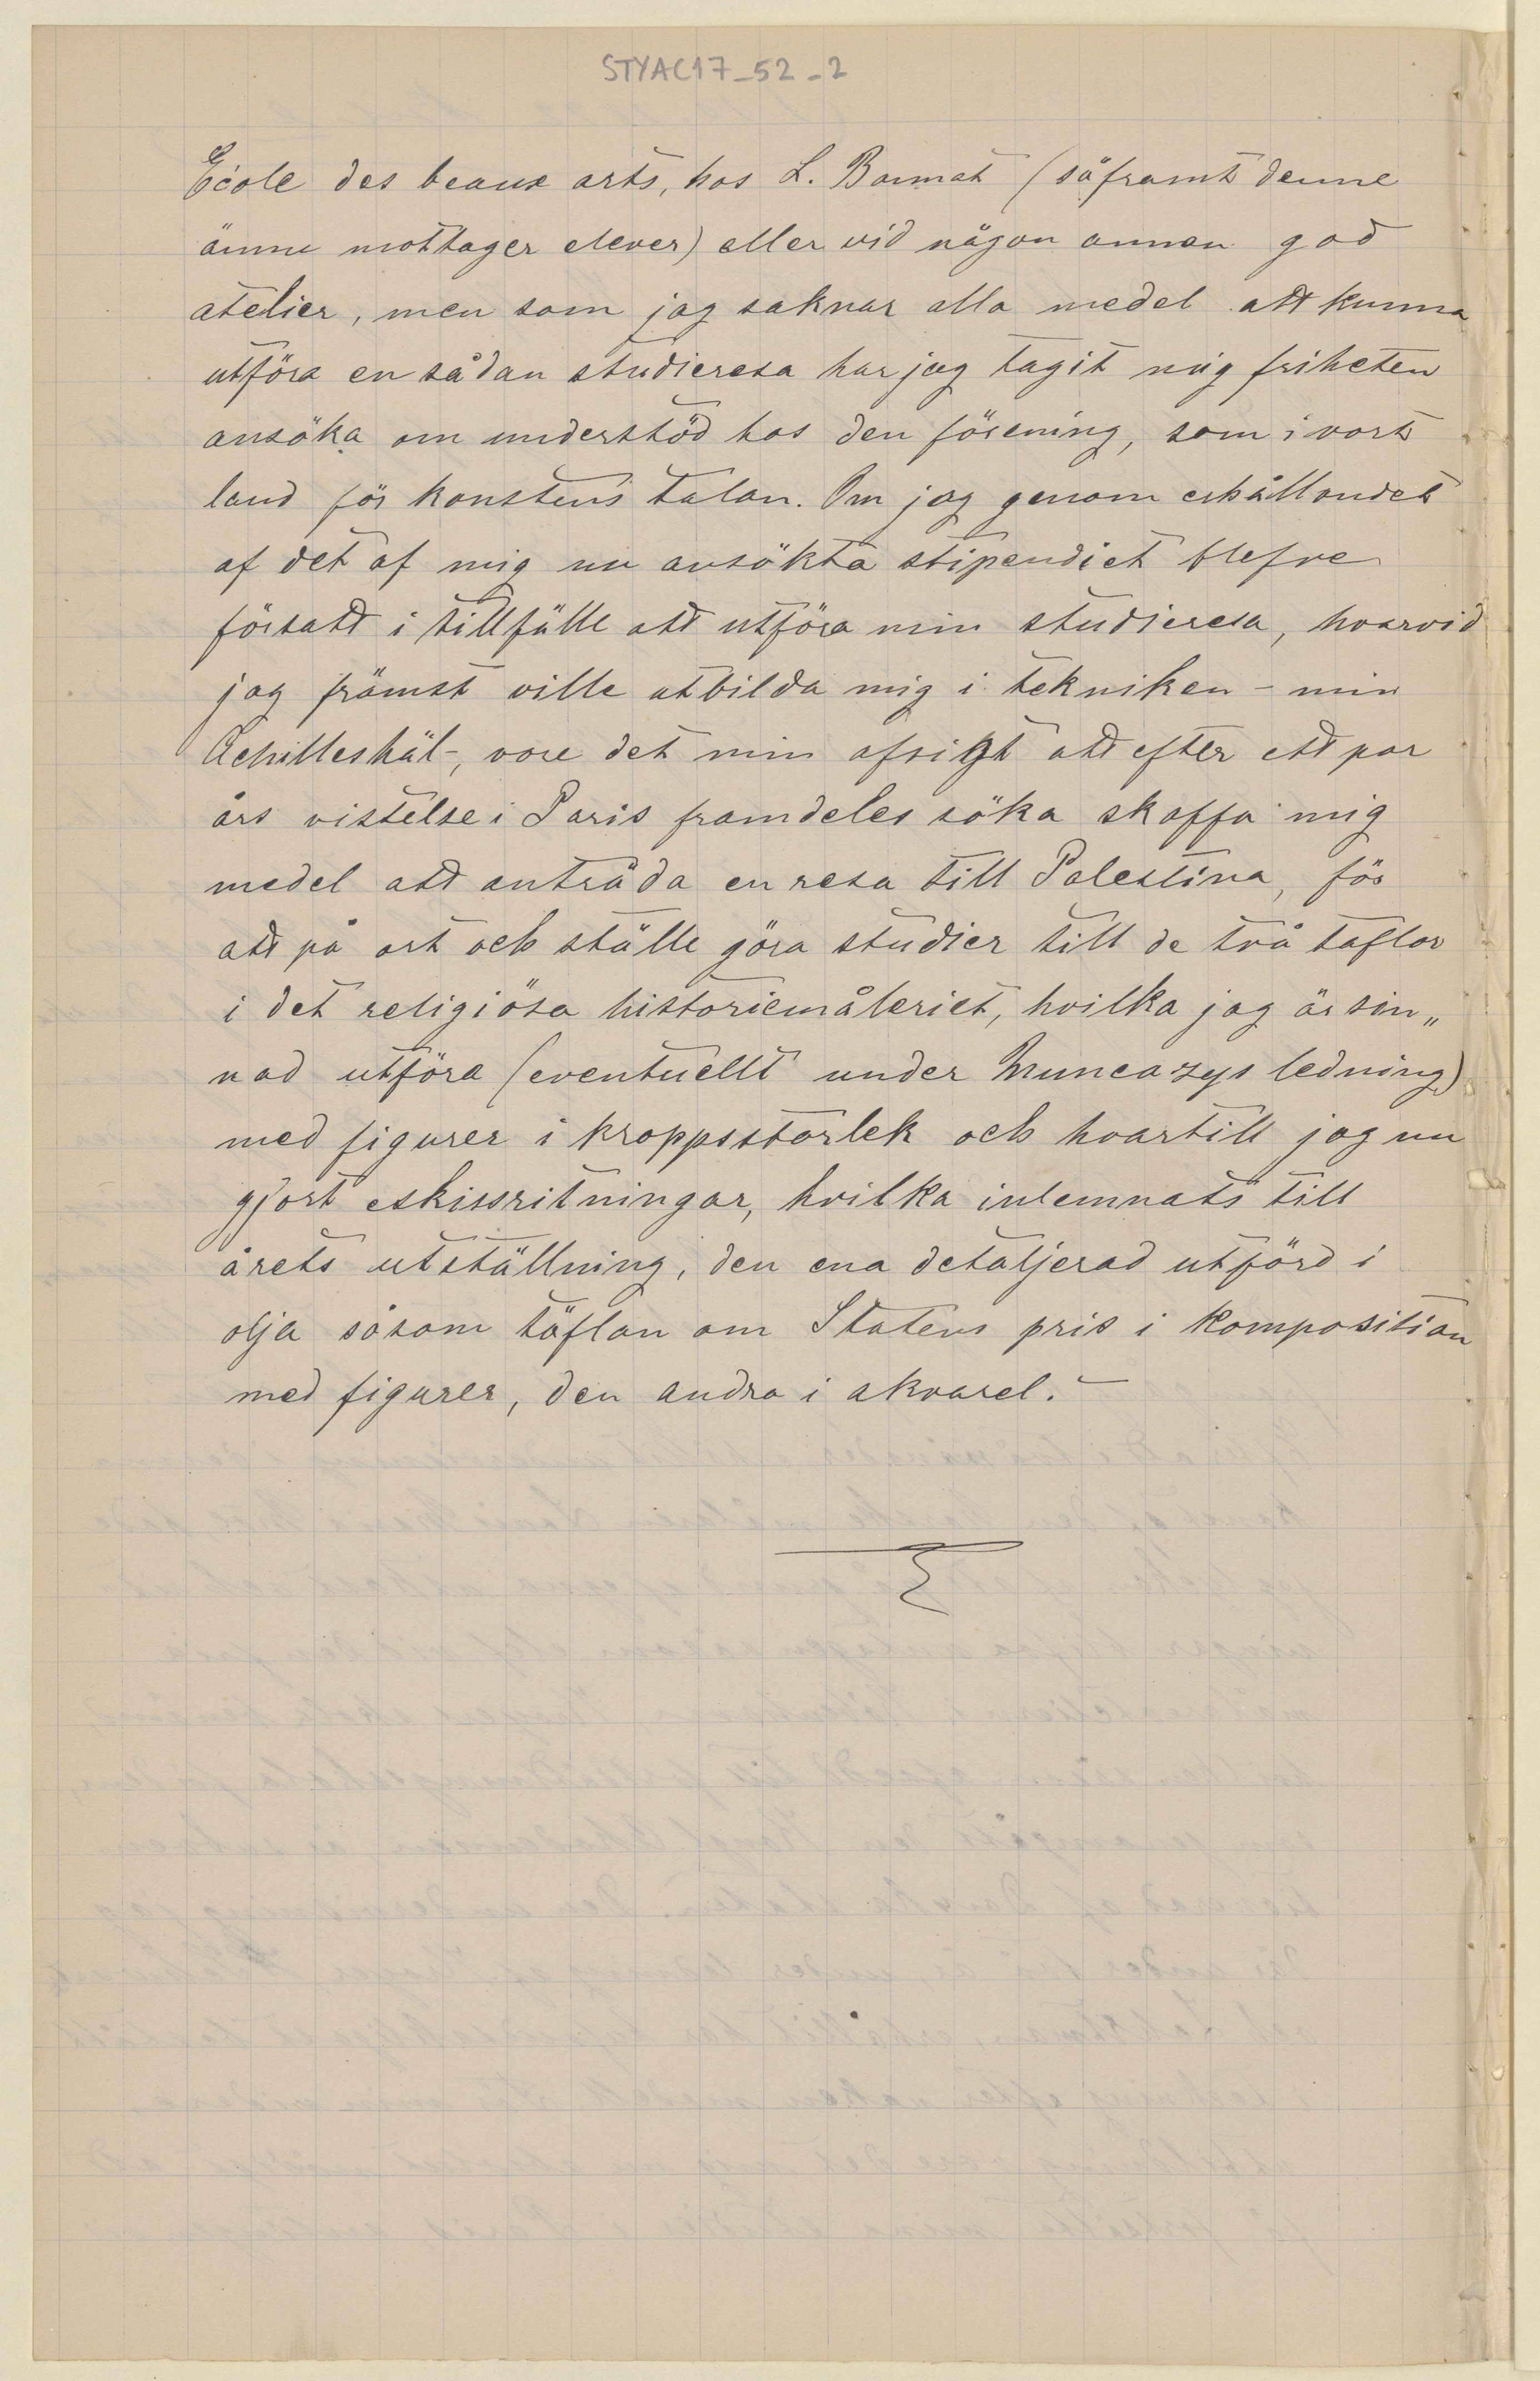 STYAC17_52_2
École des beaux arts, hos L. Bonnat (såframt denne
ännu mottager elever) eller vid någon annan god
atelier, men som jag saknar alla medel att kunna
utföra en sådan studieresa har jag tagit mig friheten
ansöka om understöd hos den förening, som i vort
land för konstens talan. Om jag genom erhållandet
af det af mig nu ansökta stipendiet blefve
försatt i tillfälle att utföra min studieresa, hvarvid
jag främst ville utbilda mig i tekniken - min
Achilleshäl -, vore det min afsigt att efter ett par
års vistelse i Paris framdeles söka skaffa mig
medel att anträda en resa till Palestina, för
att på ort och ställe göra studier till de två taflor
i det religiösa historiemåleriet, hvilka jag är sin„
nad utföra (eventuellt under Muncazys ledning)
med figurer i kroppsstorlek och hvartill jag nu
gjort eskissritningar, hvilka inlemnats till
årets utställning, den ena detaljerad utförd i
olja såsom täflan om Statens pris i komposition
med figurer, den andra i akvarel. -